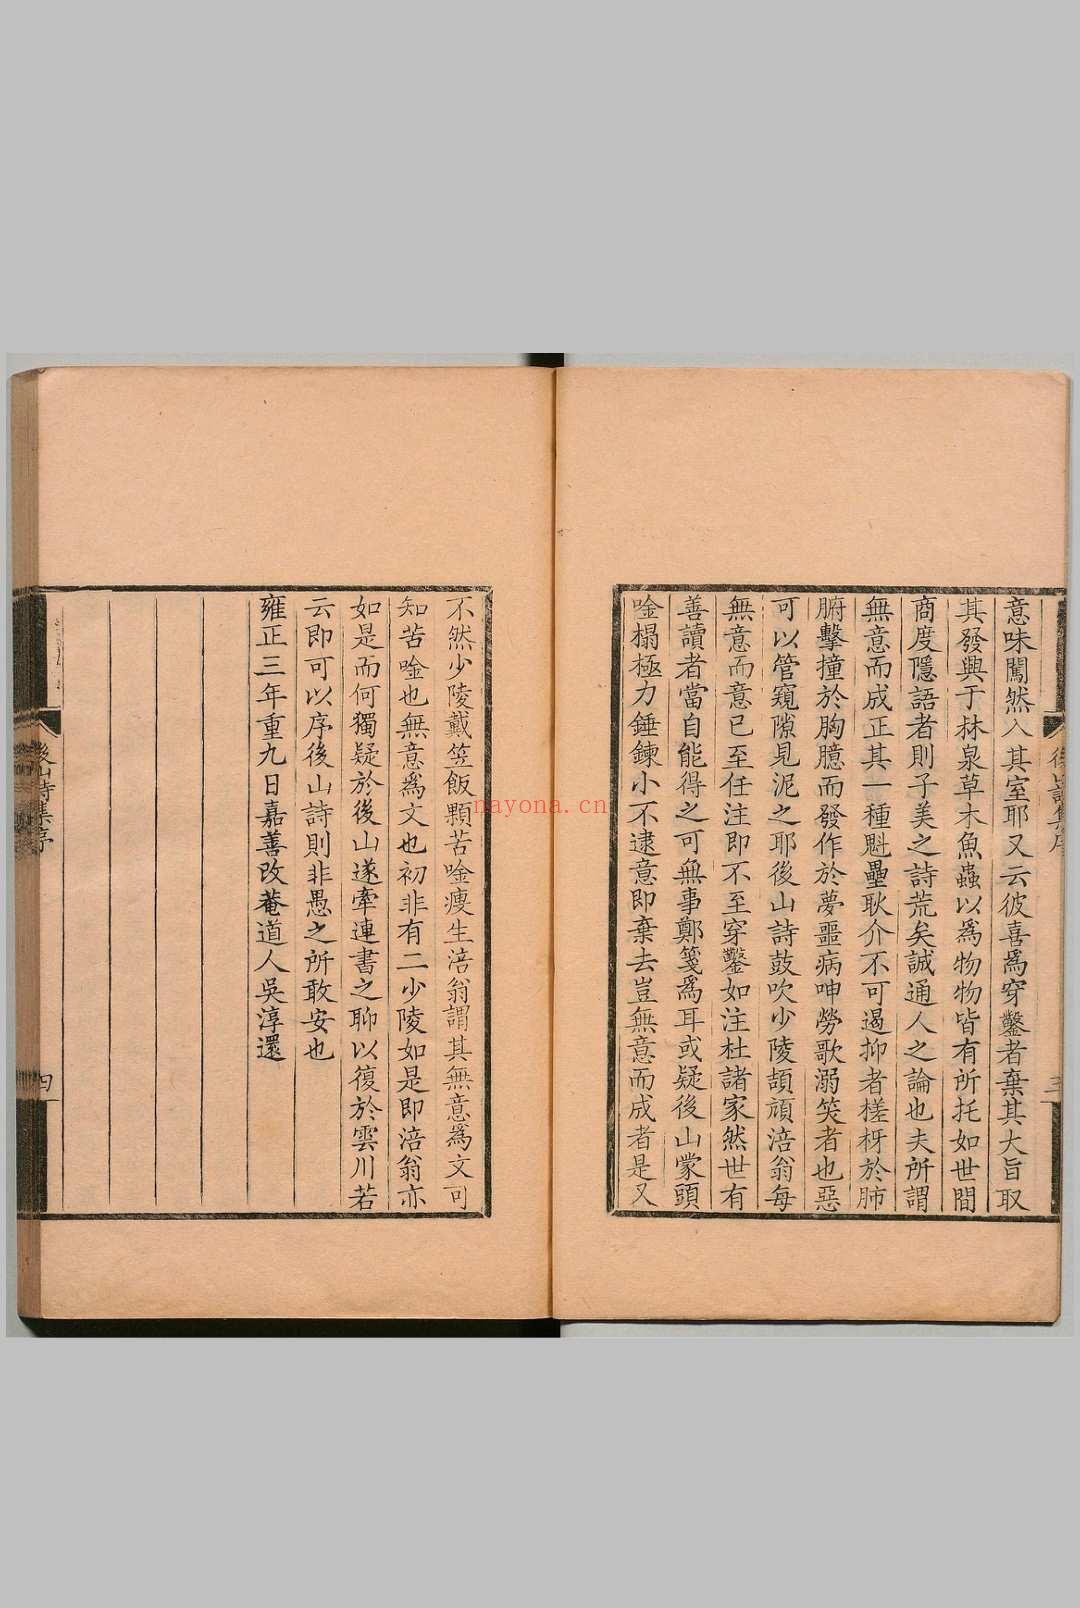 意味闖然入其室耶又云彼喜爲穿鑿者棄其大旨取
其發興于林泉草木魚蟲以爲物物皆有所托如世間
商度隱語者則子美之詩荒矣誠通人之論也夫所謂
無意而成正其一種魁壘耿介不可遏抑者槎枒於肺
腑擊撞於胸臆而發作於夢噩病呻勞歌溺笑者也惡
可以管窺隙見泥之耶後山詩鼓吹少陵頡頏涪翁每
無意而意已至任注即不至穿鑿如注杜諸家然世有
善讀者當自能得之可無事鄭箋爲耳或疑後山蒙頭
唫榻極力錘鍊小不逮意即棄去豈無意而成者是又
後山詩集序
三
不然少陵戴笠飯顆苦唫瘦生涪翁謂其無意爲文可
知苦唫也無意爲文也初非有二少陵如是即涪翁亦
如是而何獨疑於後山遂牽連書之聊以復於雲川若
云即可以序後山詩則非愚之所敢安也
雍正三年重九日嘉善改菴道人吳淳還
後山詩集序
四
nayona.cn